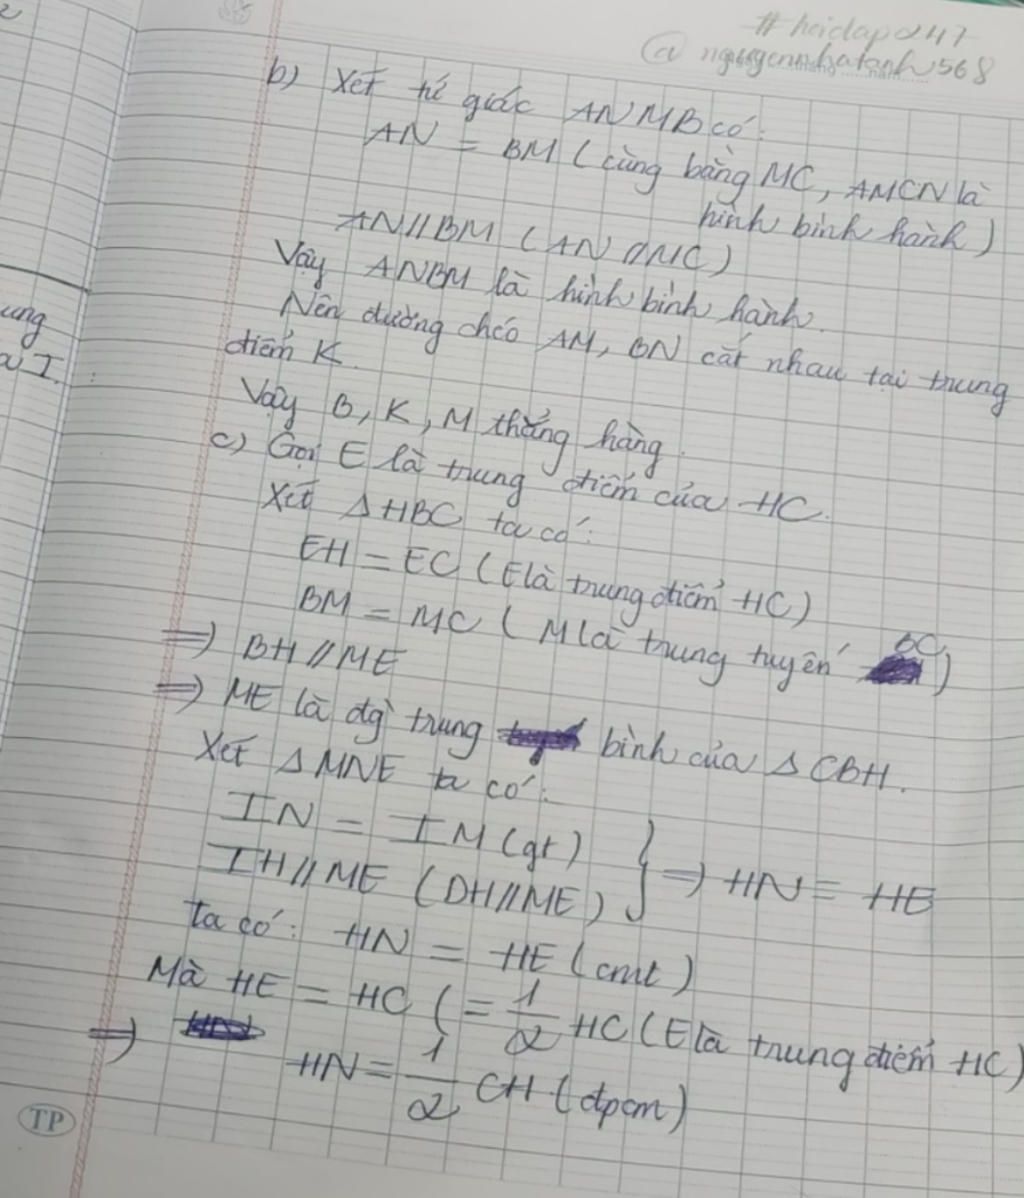 #hoidap247
@nguyennhatanh568
b) Xét tứ giác ANMB có:
AN = BM (cùng bằng MC, AMCN là
hình bình hành)
AN//BM (AN//MC)
Vậy ANBM là hình bình hành.
Nên đường chéo AM, BN cắt nhau tại trung
điểm K.
Vậy B, K, M thẳng hàng.
c) Gọi E là trung điểm của HC.
Xét Δ HBC ta có:
EH = EC (E là trung điểm HC)
BM = MC (M là trung tuyến BC)
=> BH // ME
=> ME là đg trung bình của Δ CBH.
Xét Δ MNE ta có:
IN = IM (gt)
IH // ME (DH//ME) } => HN = HE
Ta có: HN = HE (cmt)
Mà HE = HC (= 1/2 HC (E là trung điểm HC)
=> HN = 1/2 CH (đpcm)
TP
ung
I.